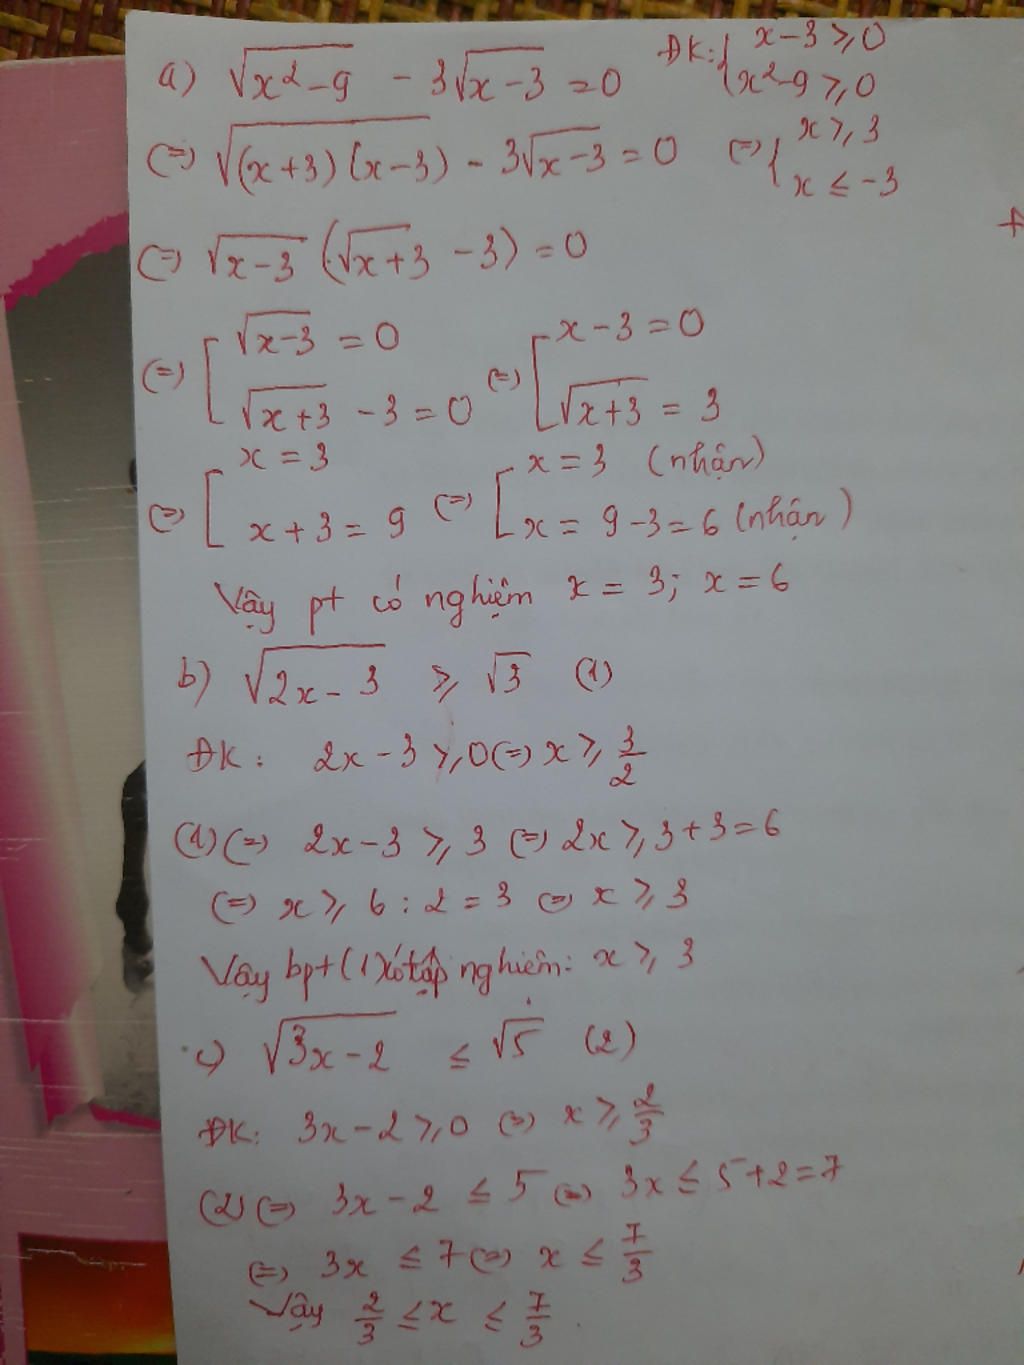 a) √(x²-9) - 3√(x-3) = 0 ĐK: { x-3 ≥ 0
x²-9 ≥ 0
(=) √((x+3)(x-3)) - 3√(x-3) = 0 (=) { x ≥ 3
x ≤ -3
(=) √(x-3) (√(x+3) - 3) = 0
(=) [ √(x-3) = 0 (=) [ x-3 = 0
√(x+3) - 3 = 0 √(x+3) = 3
(=) [ x = 3 (=) [ x = 3 (nhận)
x+3 = 9 x = 9-3 = 6 (nhận)
Vậy pt có nghiệm x = 3; x = 6
b) √(2x-3) ≥ √3 (1)
ĐK: 2x-3 ≥ 0 (=) x ≥ 3/2
(1) (=) 2x-3 ≥ 3 (=) 2x ≥ 3+3=6
(=) x ≥ 6:2=3 (=) x ≥ 3
Vậy bpt (1) có tập nghiêm: x ≥ 3
c) √(3x-2) ≤ √5 (2)
ĐK: 3x-2 ≥ 0 (=) x ≥ 2/3
(2) (=) 3x-2 ≤ 5 (=) 3x ≤ 5+2=7
(=) 3x ≤ 7 (=) x ≤ 7/3
Vậy 2/3 ≤ x ≤ 7/3.